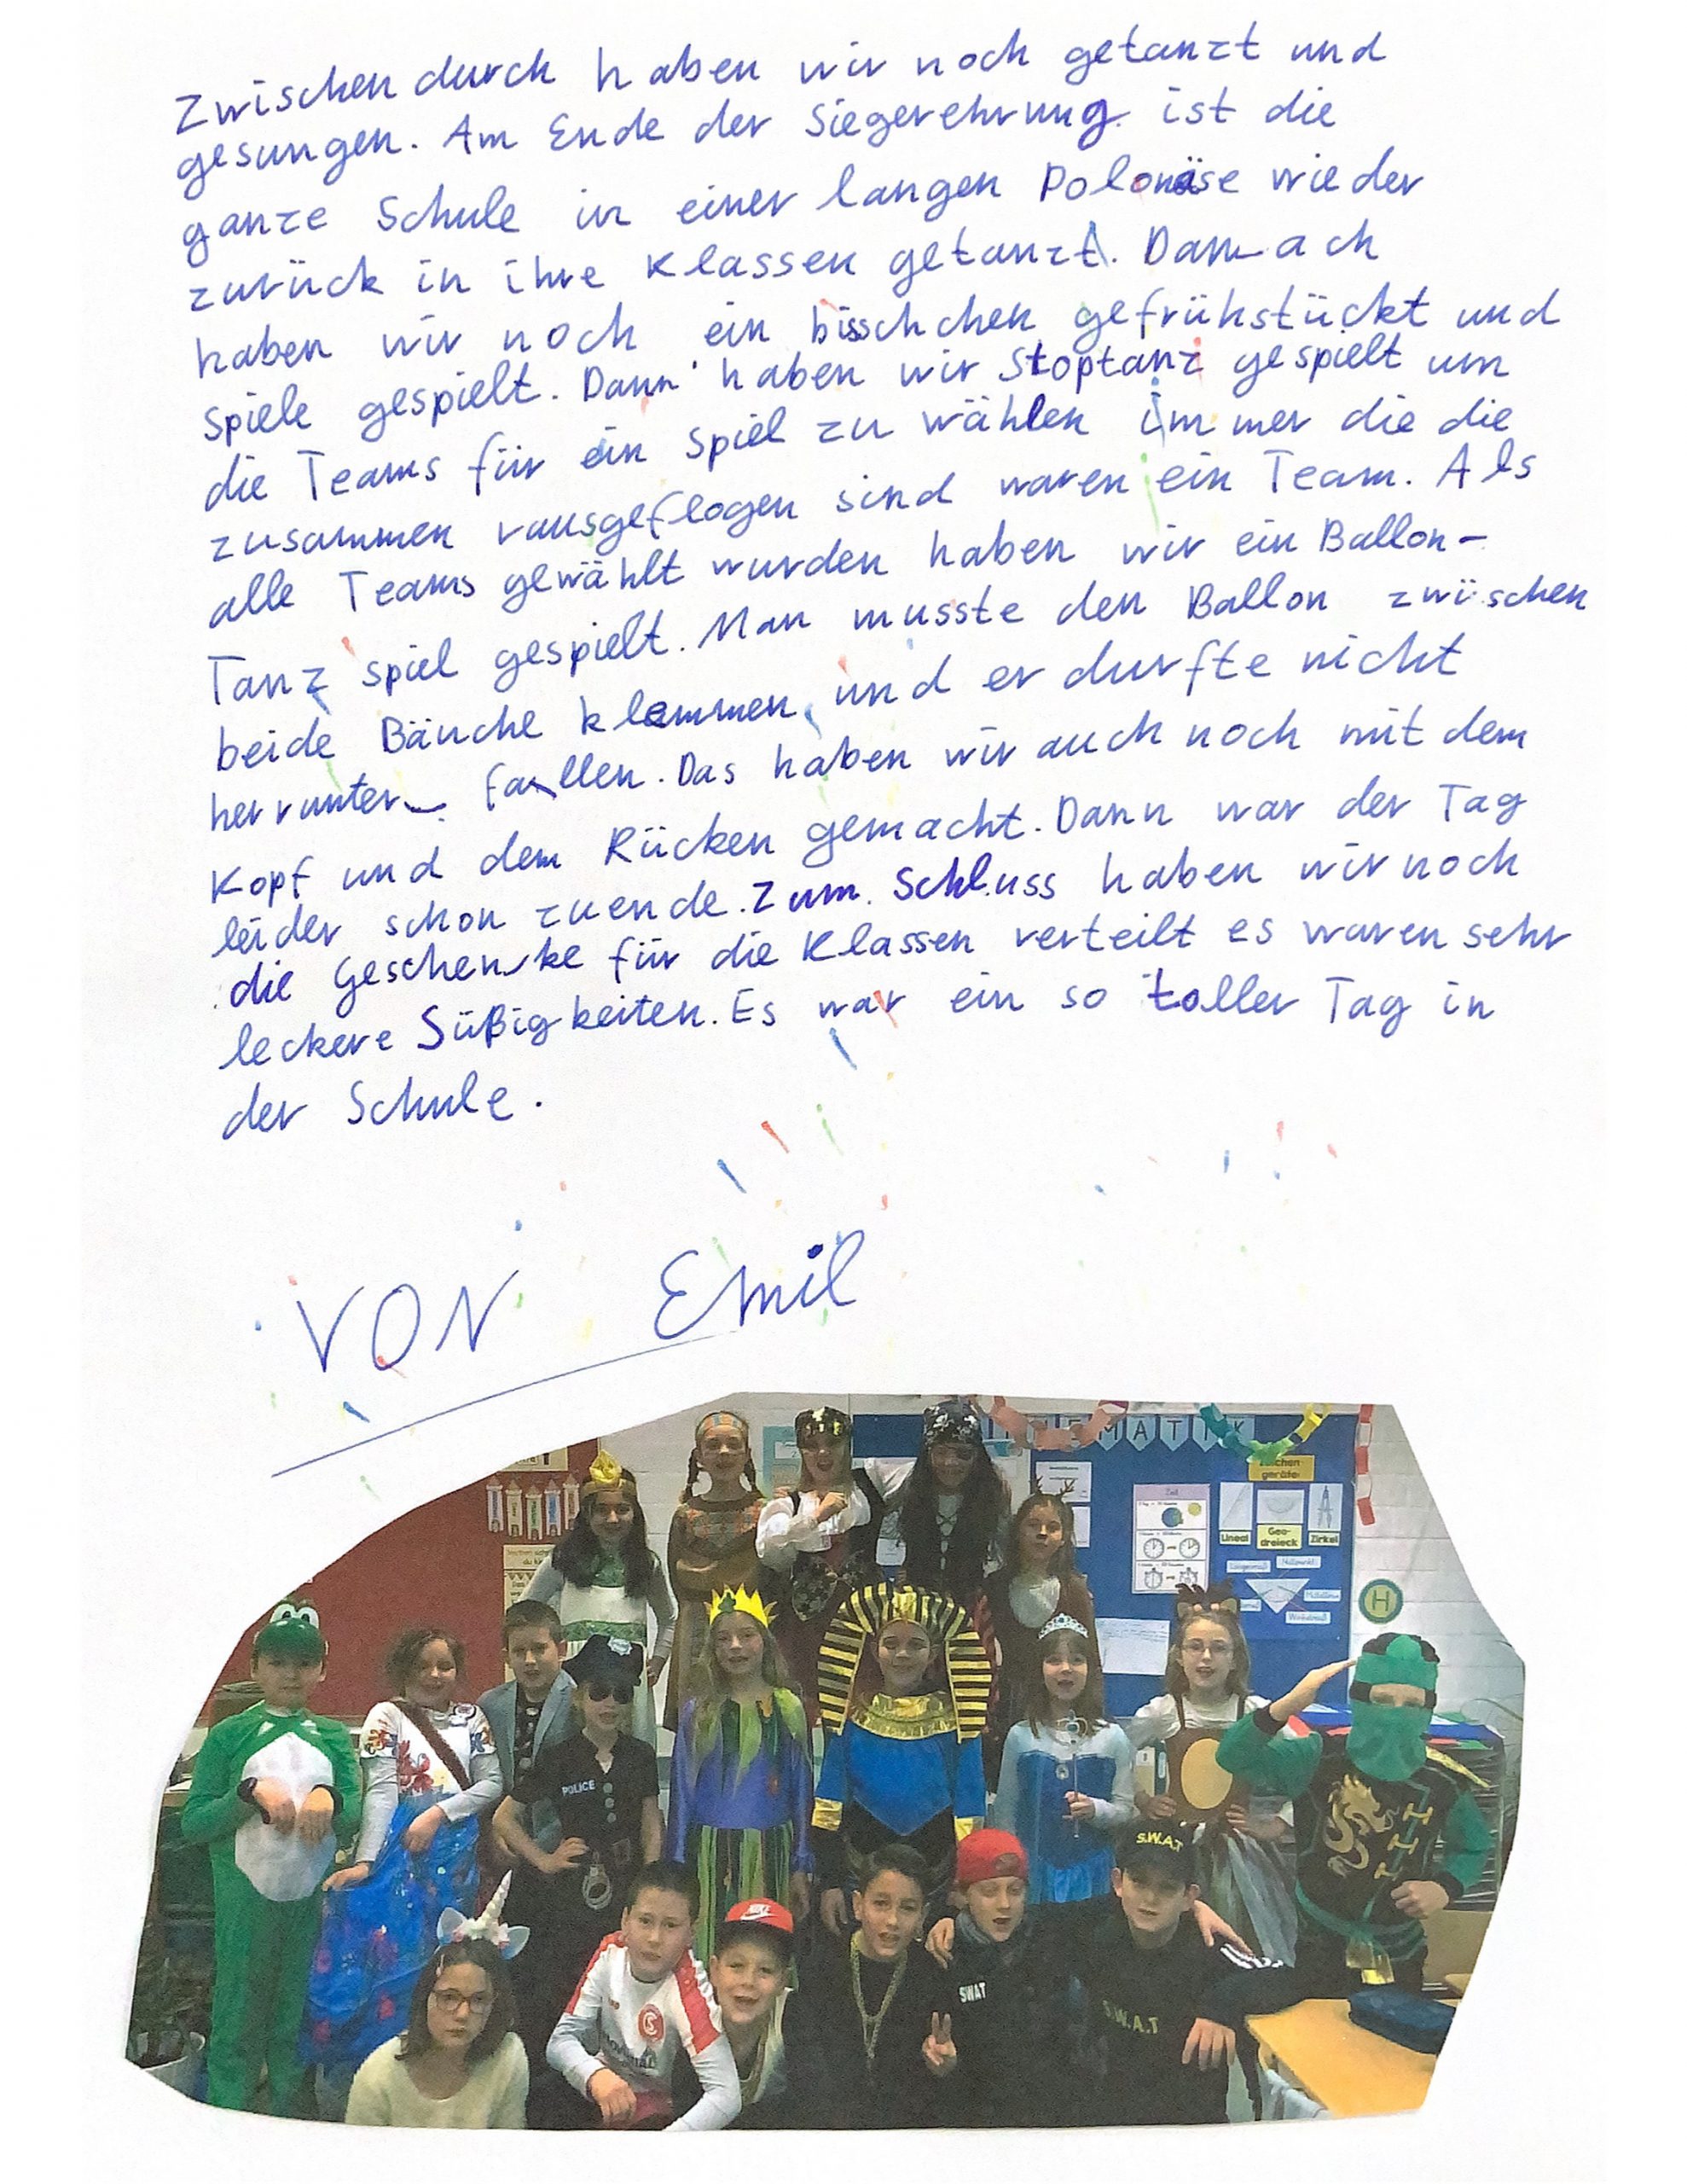 Zwischendurch haben wir noch getanzt und
gesungen. Am Ende der Siegerehrung ist die
ganze Schule in einer langen Polonäse wieder
zurück in ihre Klassen getanzt. Danach
haben wir noch ein bisschchen gefrühstückt und
Spiele gespielt. Dann haben wir Stoptanz gespielt um
die Teams für ein Spiel zu wählen immer die die
zusammen rausgeflogen sind waren ein Team. Als
alle Teams gewählt wurden haben wir ein Ballon-
Tanz spiel gespielt. Man musste den Ballon zwischen
beide Bäuche klemmen, und er durfte nicht
herrunter fallen. Das haben wir auch noch mit dem
Kopf und dem Rücken gemacht. Dann war der Tag
leider schon zuende. Zum Schluss haben wir noch
die Geschenke für die Klassen verteilt es waren sehr
leckere Süßigkeiten. Es war ein so toller Tag in
der Schule.
VON Emil
MATIK
Zeichen
geräte
Lineal
Geo-
dreieck
Zirkel
H
POLICE
S.W.A.T
SWAT
S.W.A.T